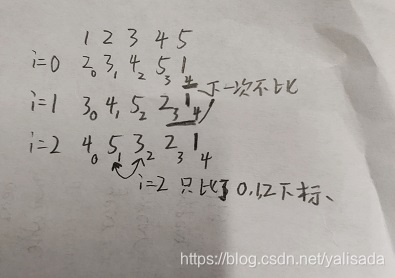 1 2 3 4 5
i=0 2₀ 3₁ 4₂ 5₃ 1₄ 下一次不比
i=1 3₀ 4₁ 5₂ 2₃ 1₄
i=2 4₀ 5₁ 3₂ 2₃ 1₄
i=2 只比了0,1,2下标、
https://blog.csdn.net/yalisada